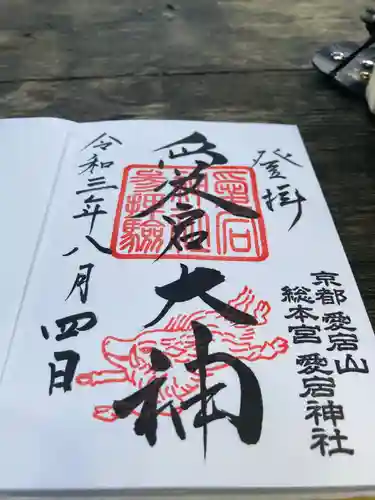 登拝
愛宕大神
令和三年八月四日
京都愛宕山
総本宮 愛宕神社